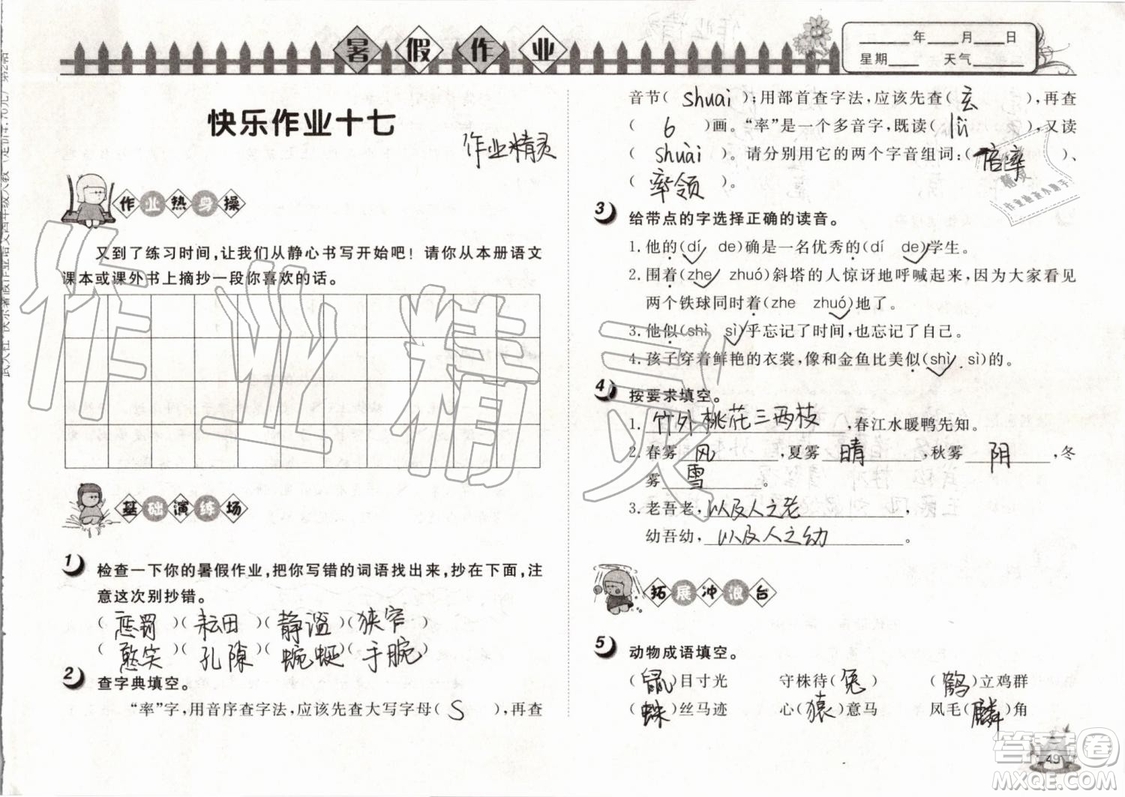 暑假作业
____年____月____日
星期____ 天气____
快乐作业十七
作业精灵
作业热身操
又到了练习时间,让我们从静心书写开始吧!请你从本册语文
课本或课外书上摘抄一段你喜欢的话。
作业精灵
基础演练场
1 检查一下你的暑假作业,把你写错的词语找出来,抄在下面,注
意这次别抄错。
(惩罚)(耘田)(静谧)(狭窄)
(憨笑)(孔隙)(蜿蜒)(手腕)
2 查字典填空。
“率”字,用音序查字法,应该先查大写字母(S),再查
音节(shuai);用部首查字法,应该先查(玄),再查
(6)画。“率”是一个多音字,既读(lǜ),又读
(shuài)。请分别用它的两个字音组词:(倍率)、
(率领)
3 给带点的字选择正确的读音。
1. 他的(dí de)确是一名优秀的(dí de)学生。
2. 围着(zhe zhuó)斜塔的人惊讶地呼喊起来,因为大家看见
两个铁球同时着(zhe zhuó)地了。
3. 他似(shì sì)乎忘记了时间,也忘记了自己。
4. 孩子穿着鲜艳的衣裳,像和金鱼比美似(shì sì)的。
4 按要求填空。
1. 竹外桃花三两枝,春江水暖鸭先知。
2. 春雾风,夏雾晴,秋雾阴,冬
雾雪。
3. 老吾老,以及人之老
幼吾幼,以及人之幼。
拓展冲浪台
5 动物成语填空。
(鼠)目寸光 守株待(兔) (鹤)立鸡群
(蛛)丝马迹 心(猿)意马 凤毛(麟)角
49
答案圈
MXQE.COM